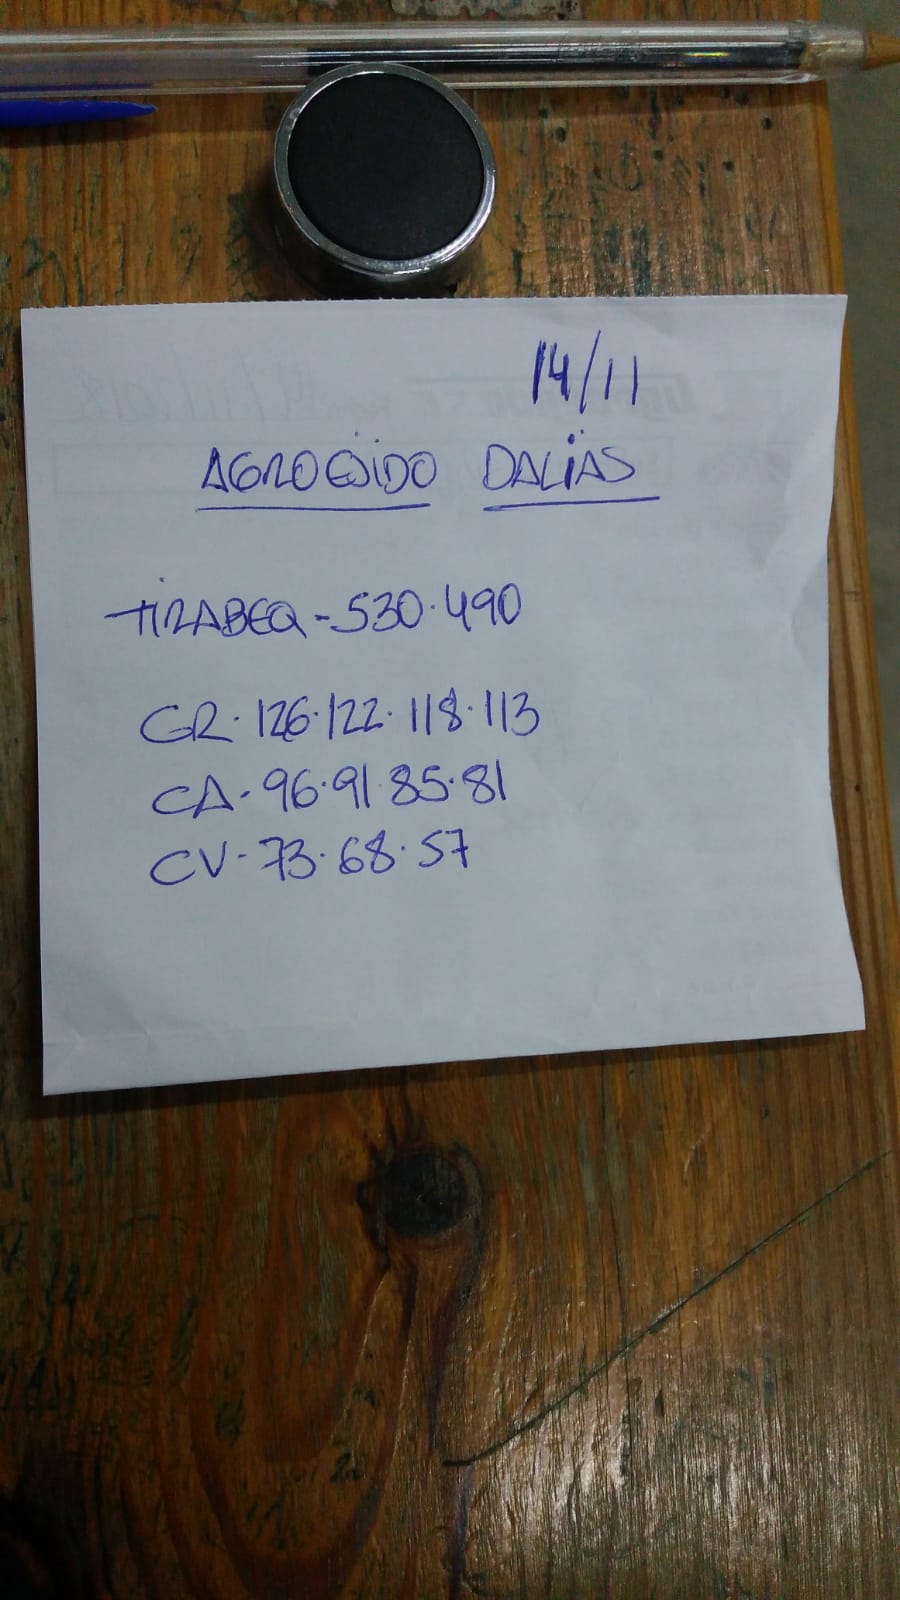 14/11
AGROEJIDO DALÍAS
TIRABEQ-530.490
GR.126.122.118.113
CA-96.91.85.81
CV-73.68.57